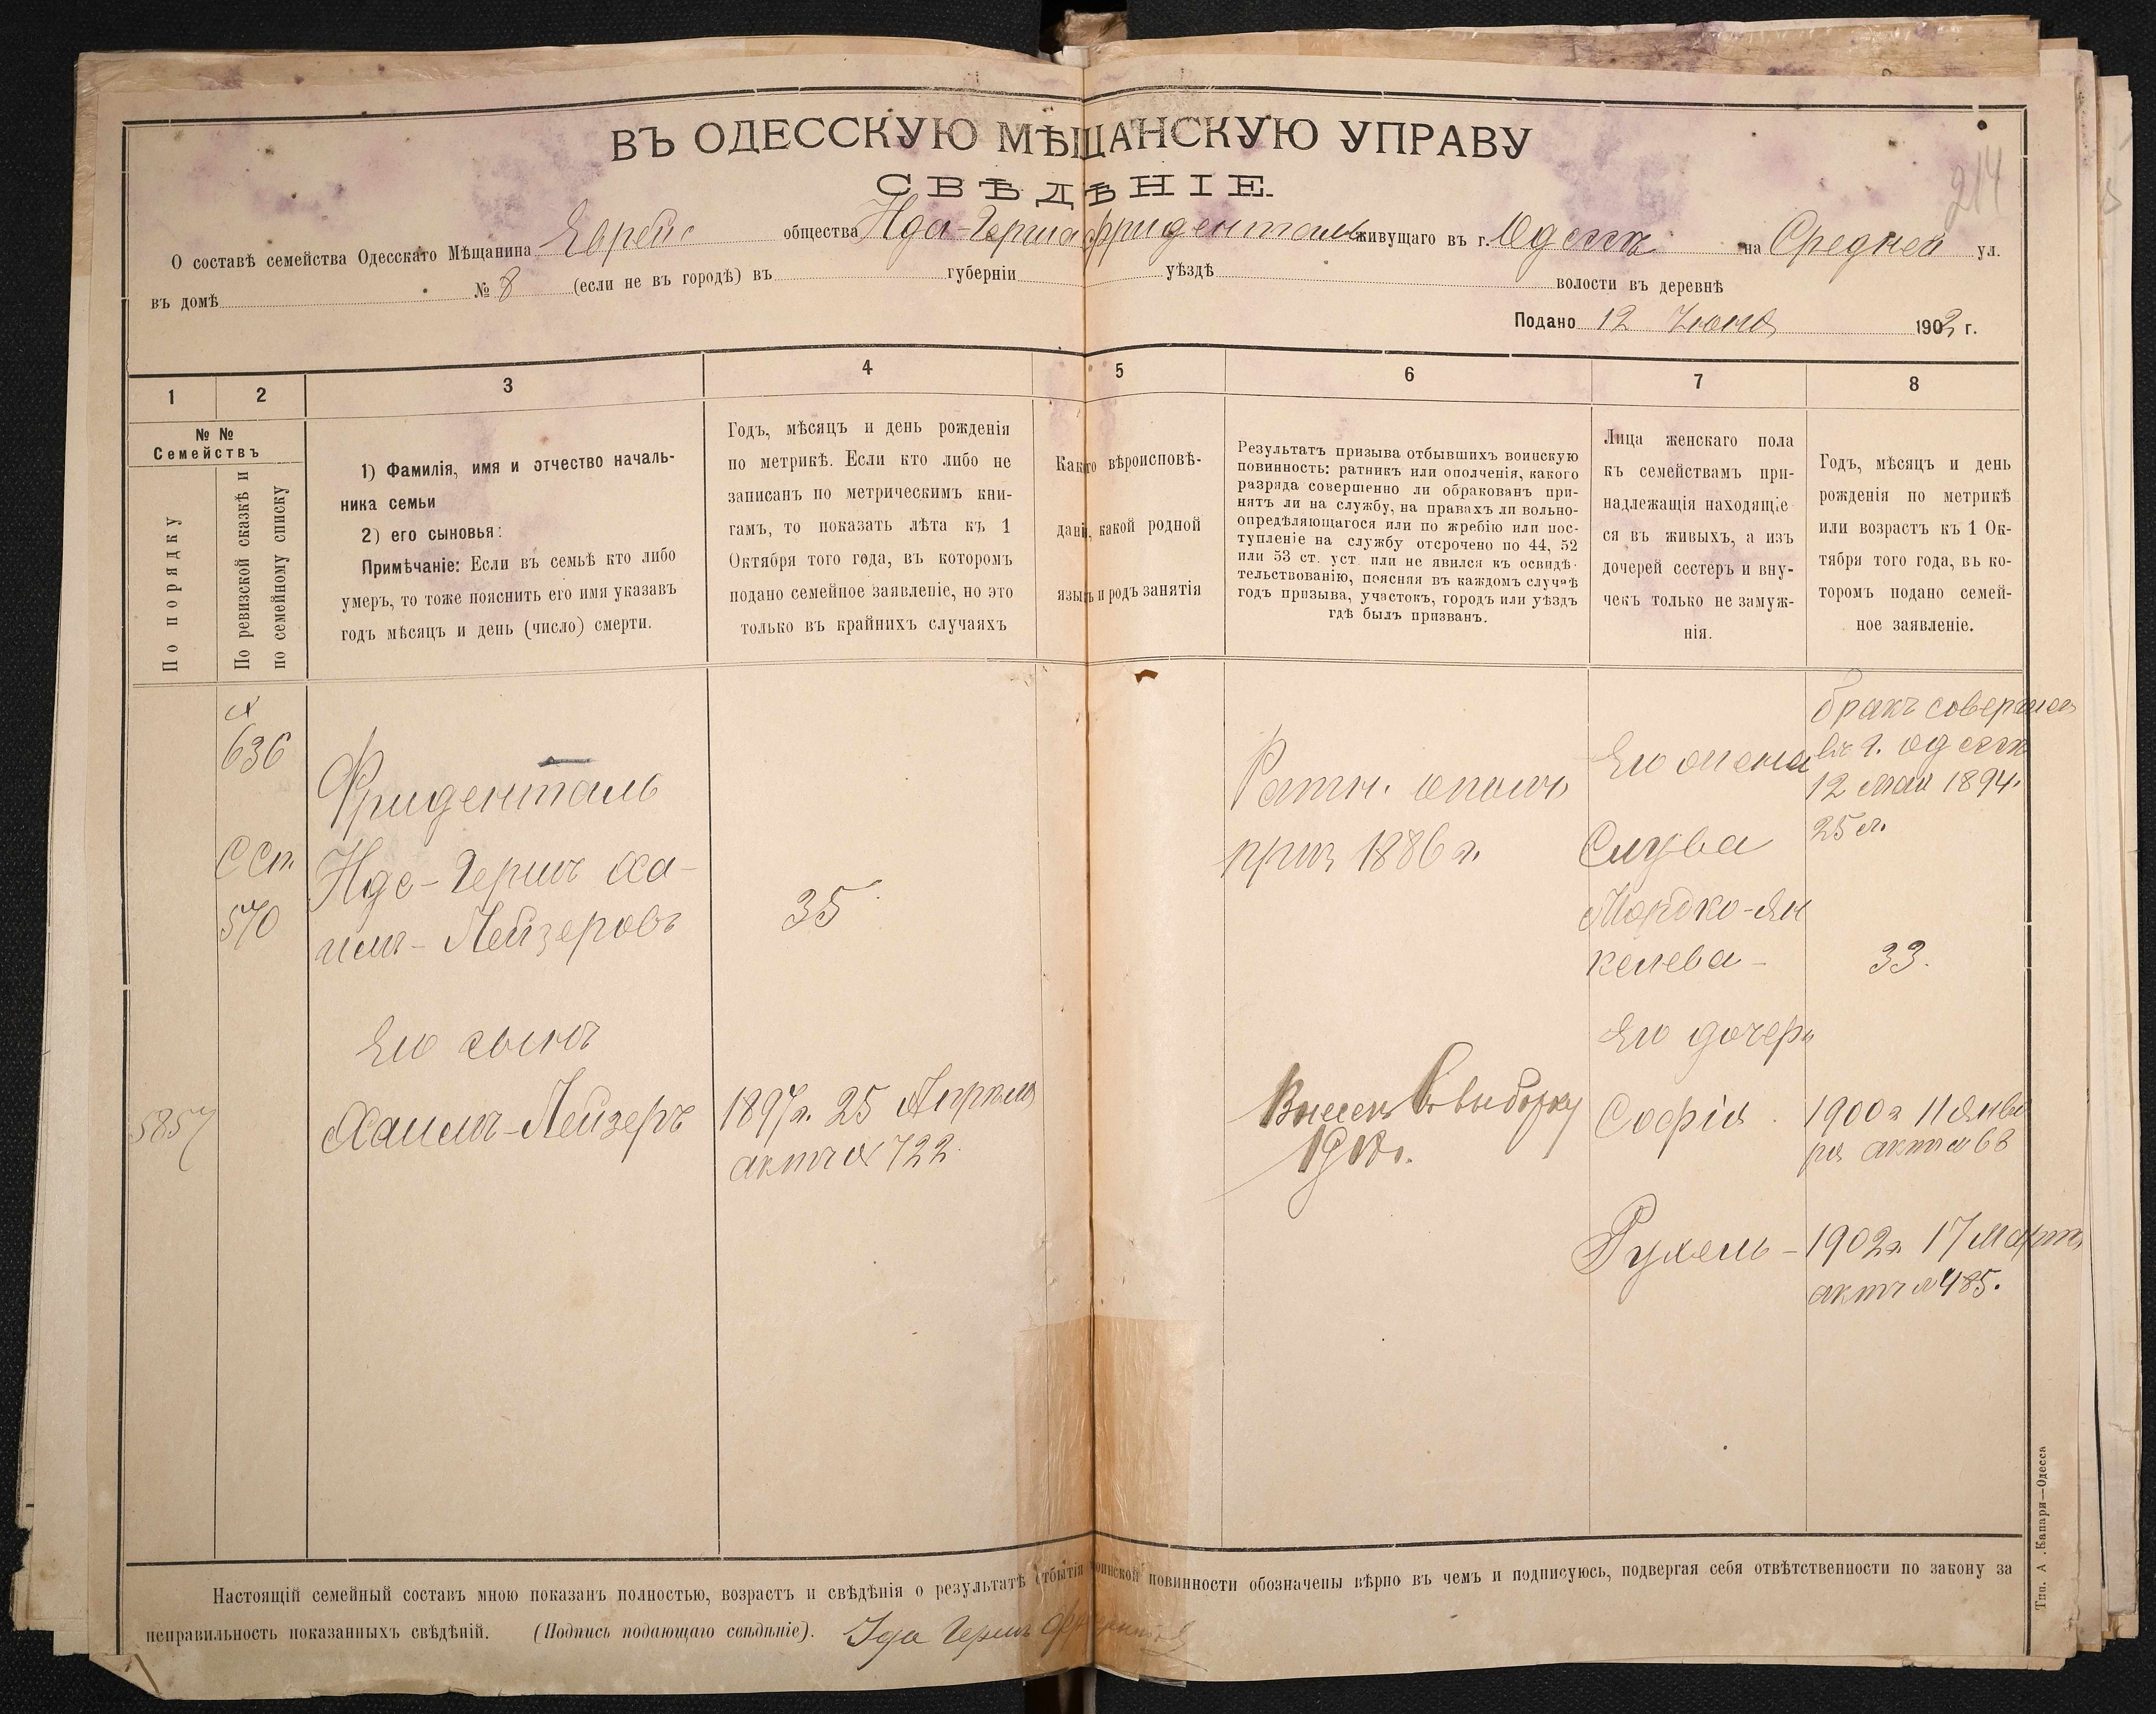 ВЪ ОДЕССКУЮ МѢЩАНСКУЮ УПРАВУ
СВѢДѢНІЕ.
214
О составѣ семейства Одесскаго Мѣщанина Еврейс общества Ида-Герша Фриденталь живущаго въ г. Одессѣ на Средней ул.
въ домѣ № 8 (если не въ городѣ) въ губерніи уѣздѣ волости въ деревнѣ
Подано 12 Іюня 1902 г.
1 2 3 4 5 6 7 8
№ №
Семействъ
По порядку
По ревизской сказкѣ и
по семейному списку
1) Фамилія, имя и отчество началь-
ника семьи
2) его сыновья:
Примѣчаніе: Если въ семьѣ кто либо
умеръ, то тоже пояснить его имя указавъ
годъ мѣсяцъ и день (число) смерти.
Годъ, мѣсяцъ и день рожденія
по метрикѣ. Если кто либо не
записанъ по метрическимъ кни-
гамъ, то показать лѣта къ 1
Октября того года, въ которомъ
подано семейное заявленіе, но это
только въ крайнихъ случаяхъ
Какого вѣроисповѣ-
данія, какой родной
языкъ и родъ занятія
Результатъ призыва отбывшихъ воинскую
повинность: ратникъ или ополченія, какого
разряда совершенно ли обракованъ при-
нятъ ли на службу, на правахъ ли вольно-
опредѣляющагося или по жребію или пос-
тупленіе на службу отсрочено по 44, 52
или 53 ст. уст. или не явился къ освидѣ-
тельствованію, поясняя въ каждомъ случаѣ
годъ призыва, участокъ, городъ или уѣздъ
гдѣ былъ призванъ.
Лица женскаго пола
къ семействамъ при-
надлежащія находящіе
ся въ живыхъ, а изъ
дочерей сестеръ и вну-
чекъ только не замуж-
нія.
Годъ, мѣсяцъ и день
рожденія по метрикѣ
или возрастъ къ 1 Ок-
тября того года, въ ко-
торомъ подано семей-
ное заявленіе.
№
636
С Сп.
570
Фриденталь
Идс-Гершъ Ха-
имъ-Лейзеровъ
35
Ратн. ополч,
приз 1886 г.
Его жена
Слува
Мордко-Ян
келева-
бракъ совершен
въ г. Одессѣ
12 мая 1894.
25 л.
33.
Его сынъ
5857
Хаимъ-Лейзеръ
1897 г. 25 Апрѣля
актъ № 722
Внесенъ въ выборку
1918 г.
Его дочери
Софія
1900 г 11 Янва
ря актъ № 68
Рухель -
1902 г. 17 Марта
актъ № 485.
Настоящій семейный составъ мною показанъ полностью, возрастъ и свѣдѣнія о результатѣ отбытія воинской повинности обозначены вѣрно въ чемъ и подписуюсь, подвергая себя отвѣтственности по закону за
неправильность показанныхъ свѣдѣній. (Подпись подающаго свѣдѣніе). Ида Гершъ
Тип. А. Капари—Одесса